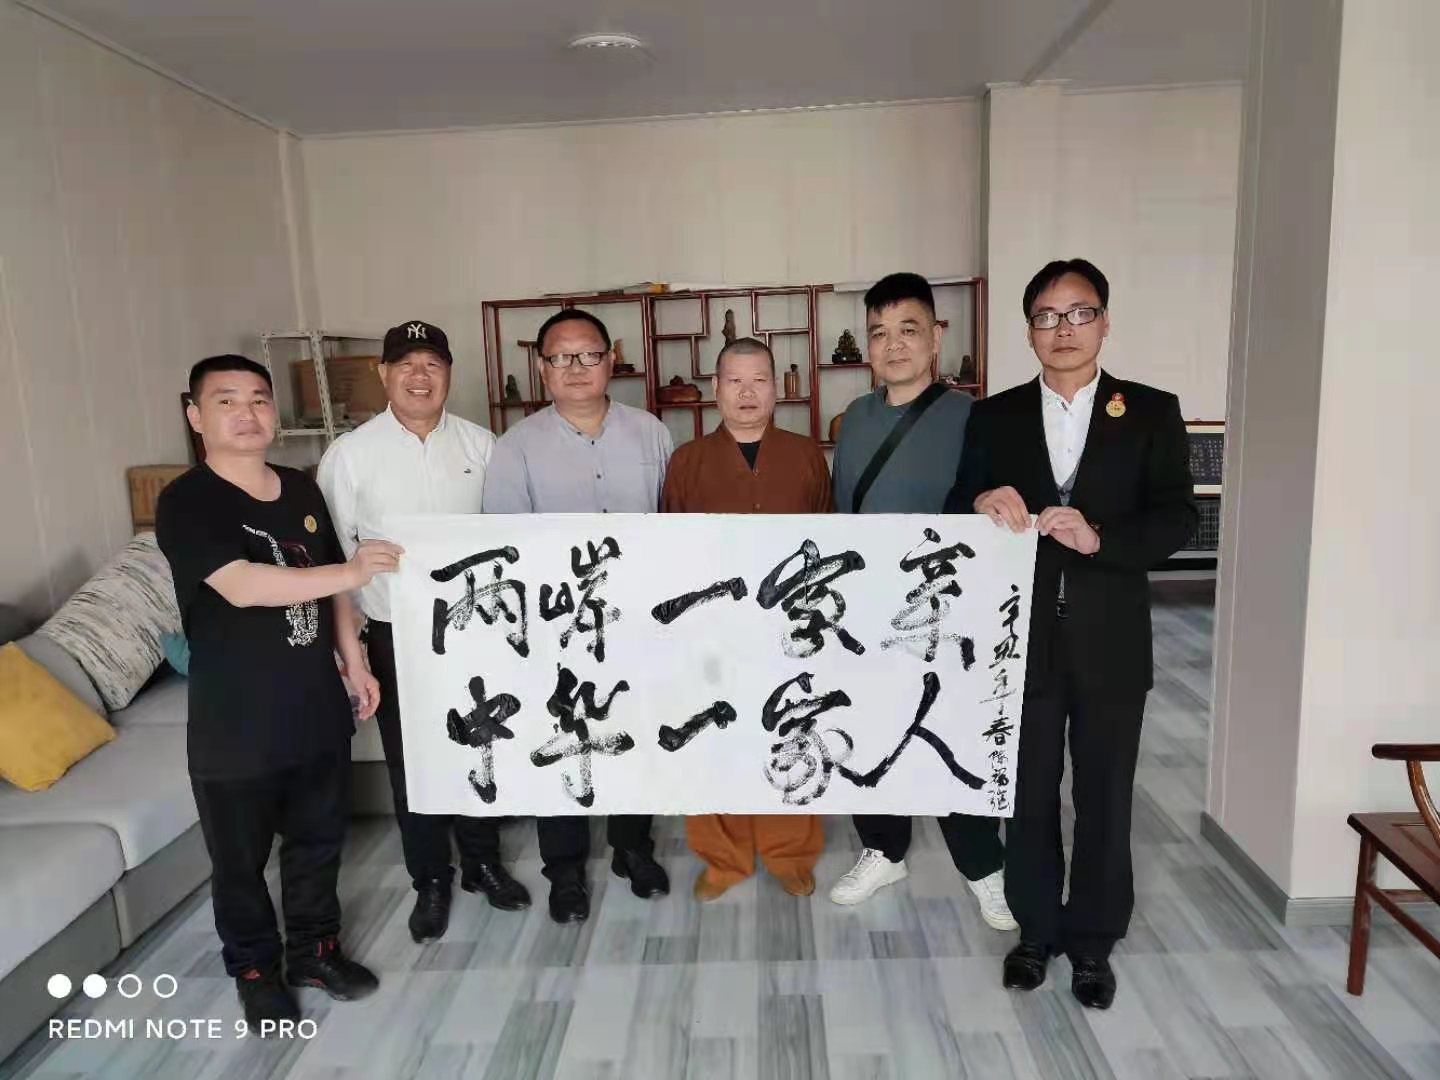 两岸一家亲
中华一家人
辛丑年春陈福强
NY
REDMI NOTE 9 PRO